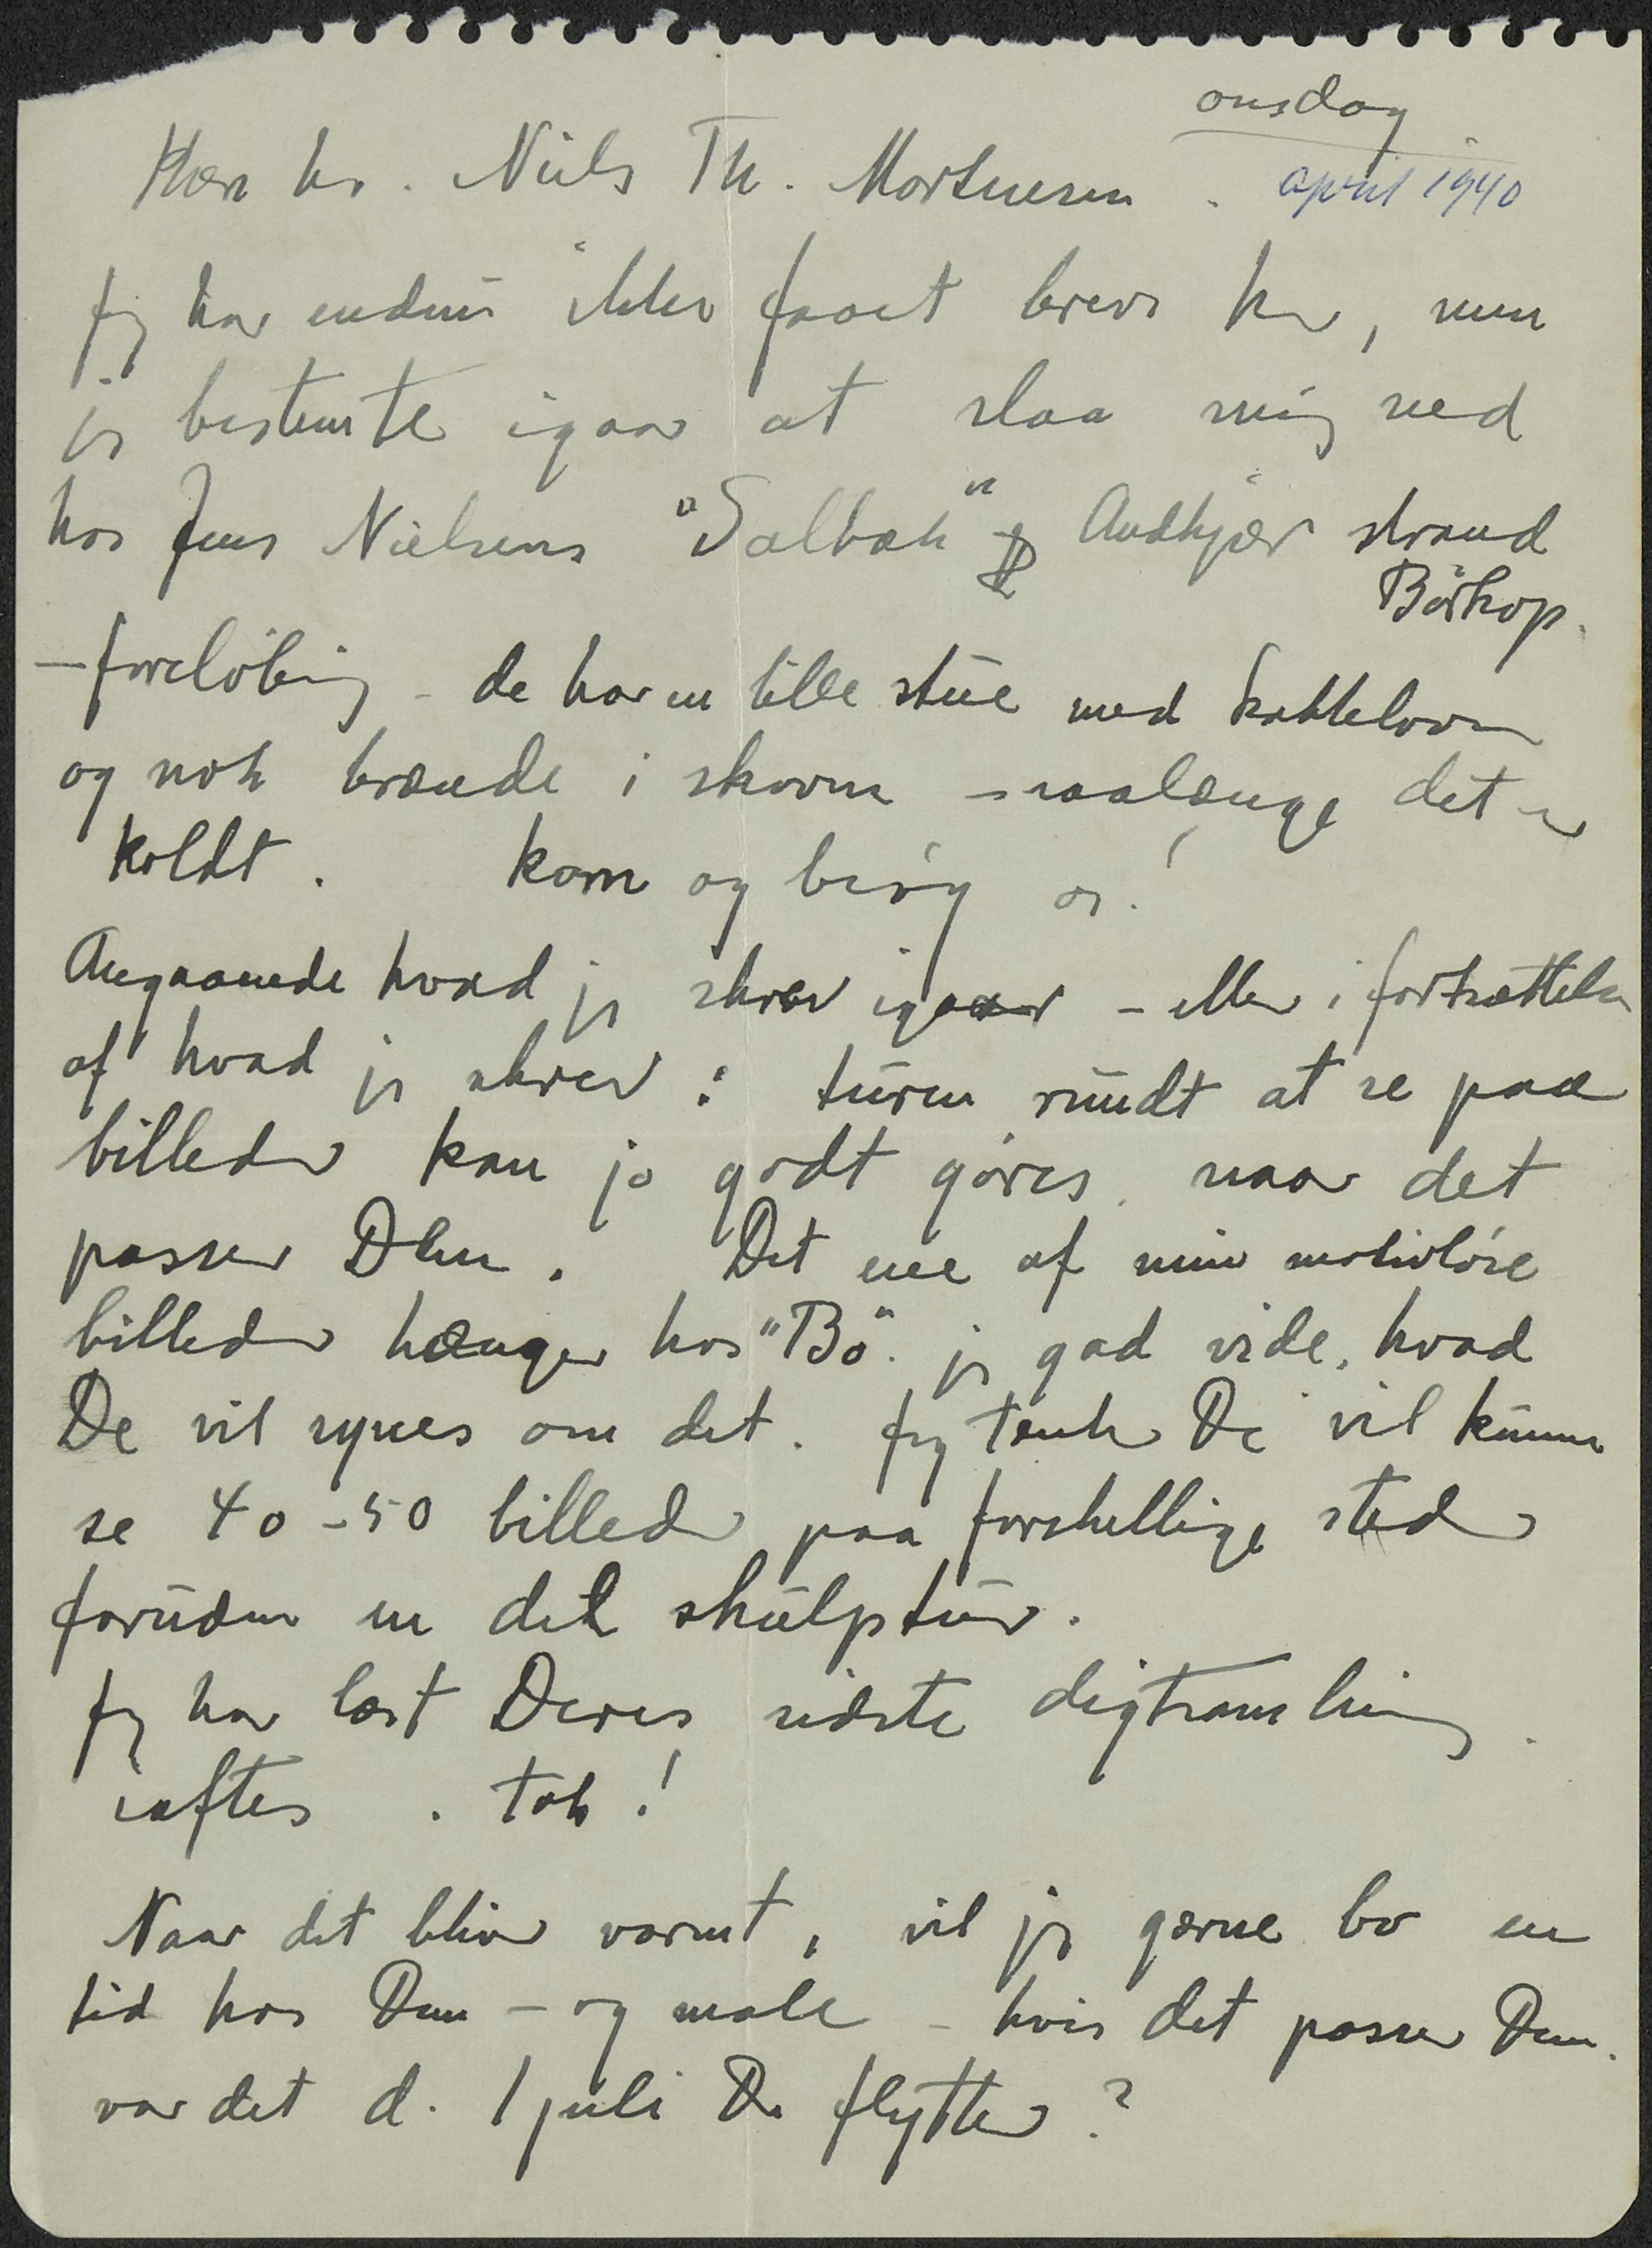 onsdag
Kære hr. Niels Th. Mortensen. april 1940
Jeg har endnu ikke faaet brev her, men
jeg bestemte igaar at slaa mig ned
hos Jens Nielsens "Salbæk" Andkjær strand
Börkop.
– foreløbig – de har en lille stue med kakkelovn
og nok brænde i skoven – saalænge det er
koldt. Kom og besøg os!
Angaaende hvad jeg skrev igaar – eller i fortsættelse
af hvad jeg skrev: turen rundt at se paa
billeder kan jo godt göres, naar det
passer Dem. Det ene af mine motivløse
billeder hænger hos "Bo". jeg gad vide, hvad
De vil synes om det. Jeg tænker De vil kunne
se 40-50 billeder paa forskellige steder
foruden en del skulptur.
Jeg har læst Deres sidste digtsamling
iaftes. Tak!
Naar det bliver varmt, vil jeg gærne bo en
tid hos Dem – og male – hvis det passer Dem.
var det d. 1 juli De flytter?